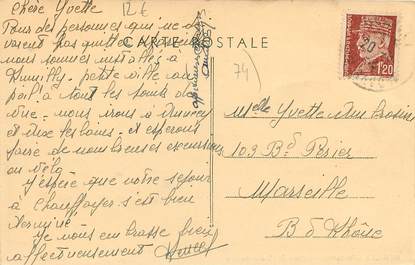 Chère Yvette 12 €
Pour des personnes qui ne de
vaient pas quitter
nous sommes installés à
Rumilly - petite ville au
poil ! à tout les points de
vue - nous irons à Annecy
et Aix les bains - et espérons
faire de nombreuses excursions
en vélo
J'espère que votre séjour
à Chauffayer s'est bien
terminé
Je vous embrasse bien
affectueusement
CARTE POSTALE
74
20
1F20
Melle Yvette
103 Bd Perier
Marseille
B d Rhône